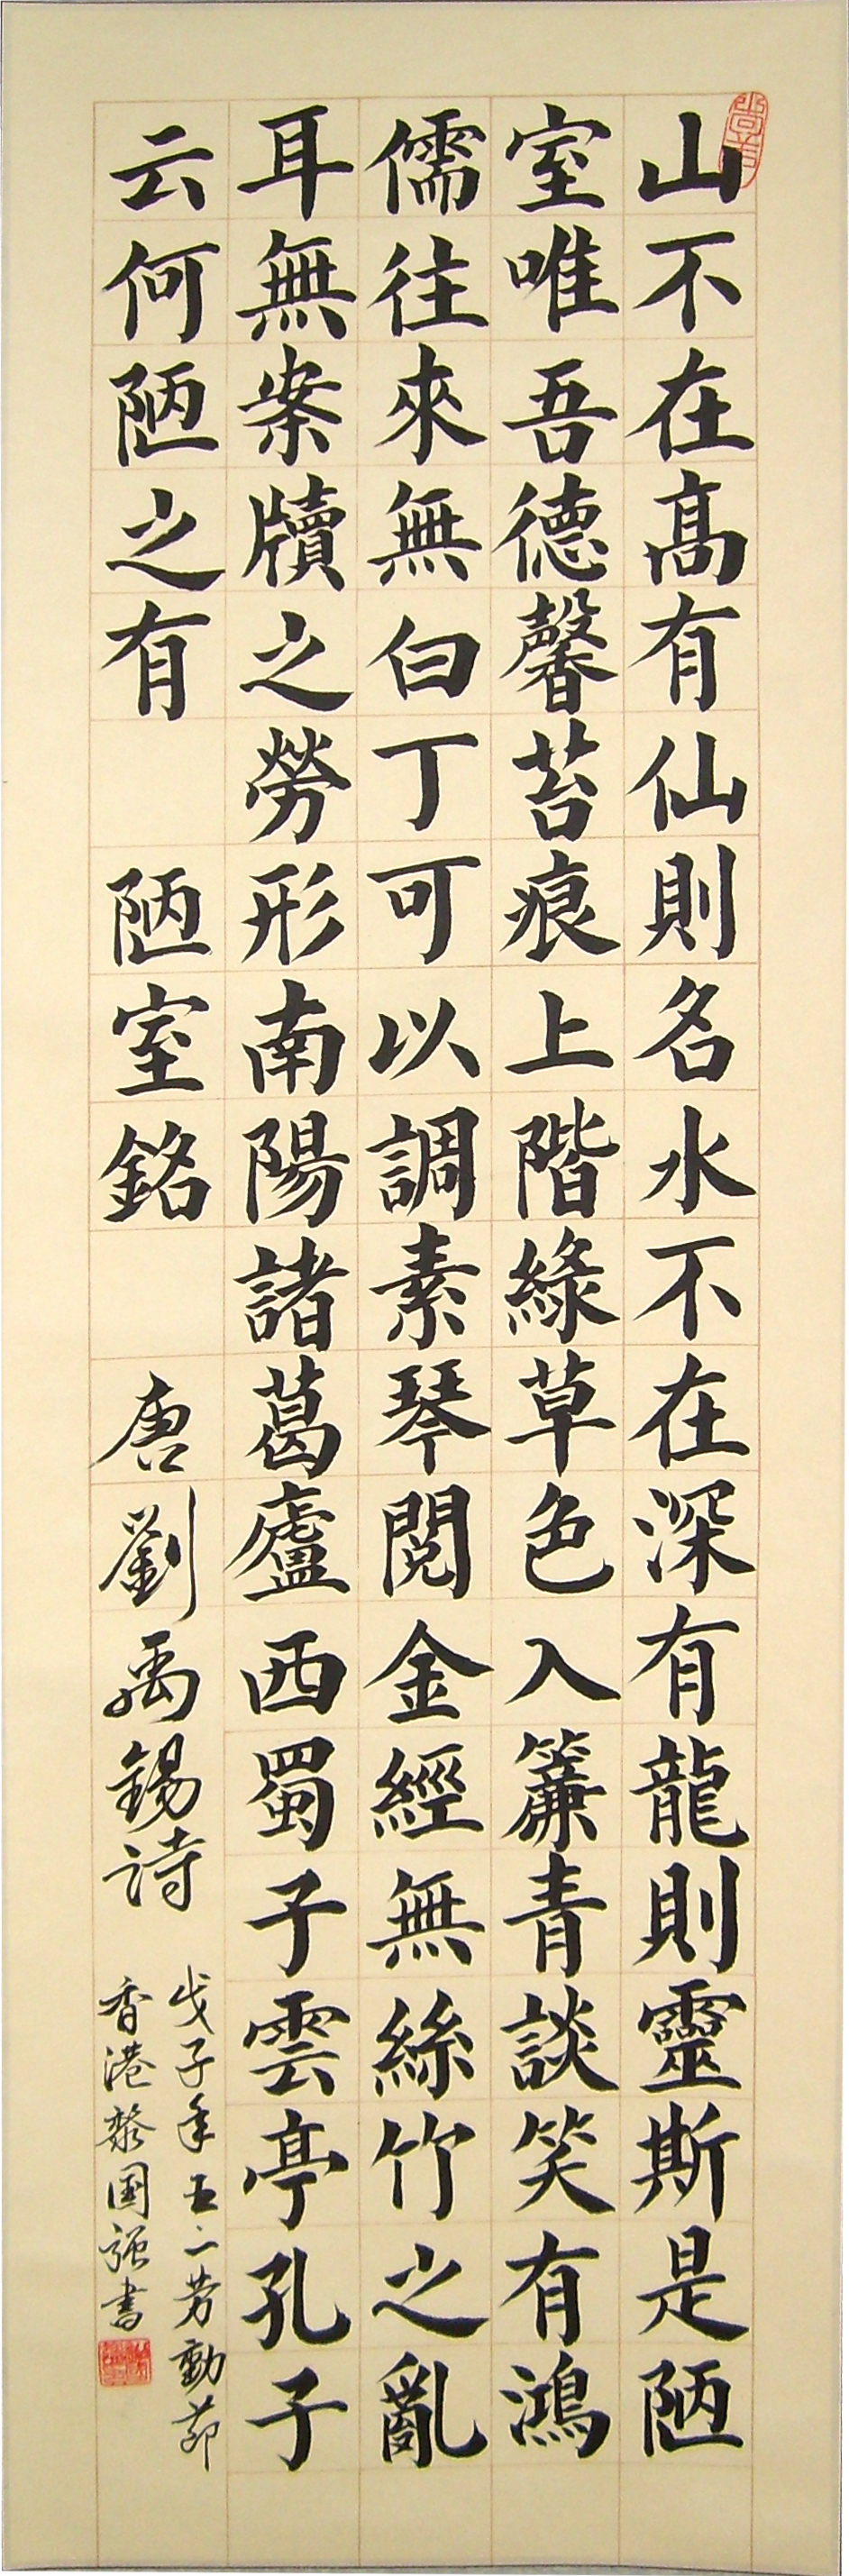 山不在高有仙則名水不在深有龍則靈斯是陋
室唯吾德馨苔痕上階綠草色入簾青談笑有鴻
儒往來無白丁可以調素琴閱金經無絲竹之亂
耳無案牘之勞形南陽諸葛廬西蜀子雲亭孔子
云何陋之有 陋室銘 唐劉禹錫诗
戊子年五一劳動节
香港黎国强書